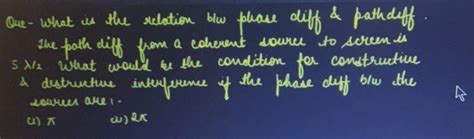 Que - What is the relation b/w phase diff & path diff.
The path diff from a coherent source to screen is
5 λ/2. What would be the condition for constructive
& destructive interference if the phase diff b/w the
sources are :-
(i) π (ii) 2π